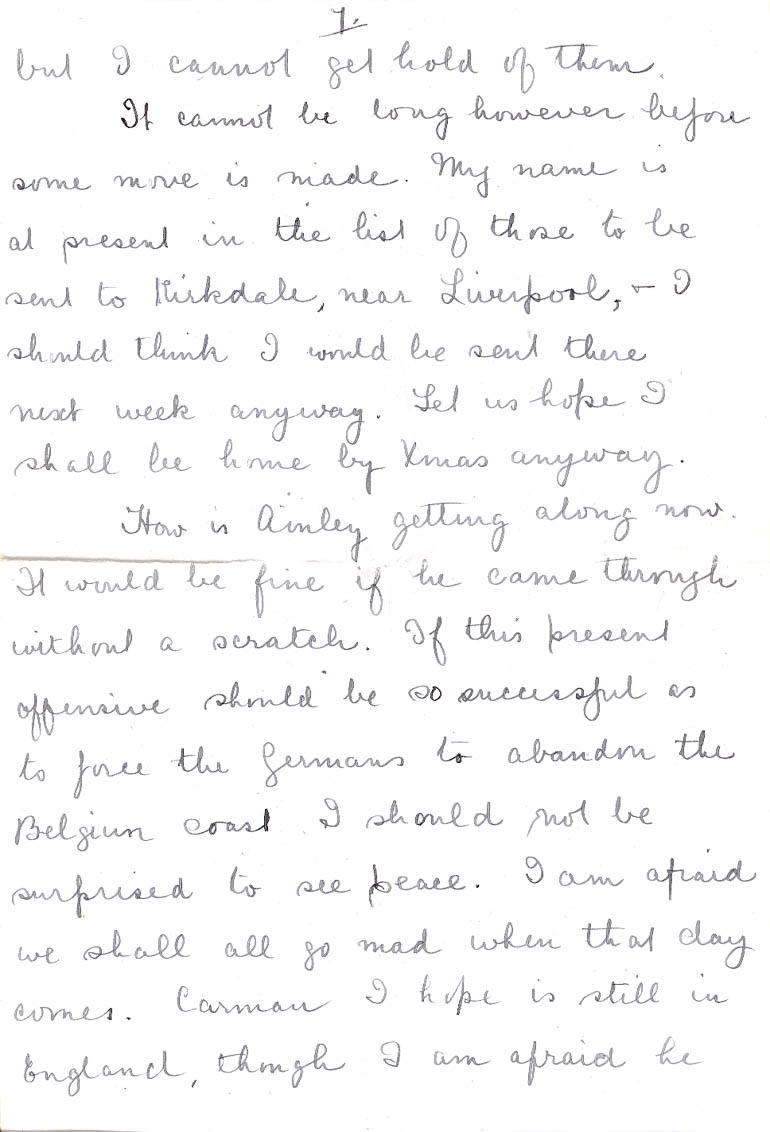 7.
but I cannot get hold of them.
It cannot be long however before
some move is made. My name is
at present in the list of those to be
sent to Kirkdale, near Liverpool, & I
should think I would be sent there
next week anyway. Let us hope I
shall be home by Xmas anyway.
How is Ainley getting along now.
It would be fine if he came through
without a scratch. If this present
offensive should be so successful as
to force the Germans to abandon the
Belgium coast I should not be
surprised to see peace. I am afraid
we shall all go mad when that day
comes. Carman I hope is still in
England, though I am afraid he